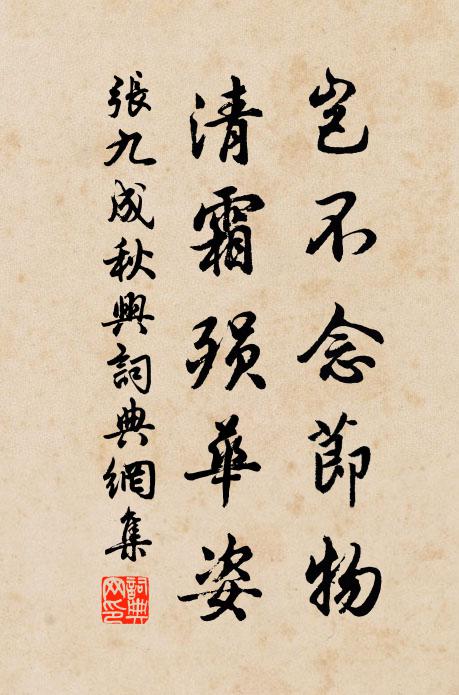 豈不念節物
清霜殞華姿
張九成秋興詞典網集
詞典網印